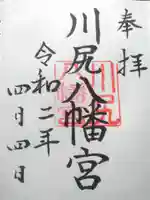 奉拝
川尻八幡宮
令和二年
四月四日